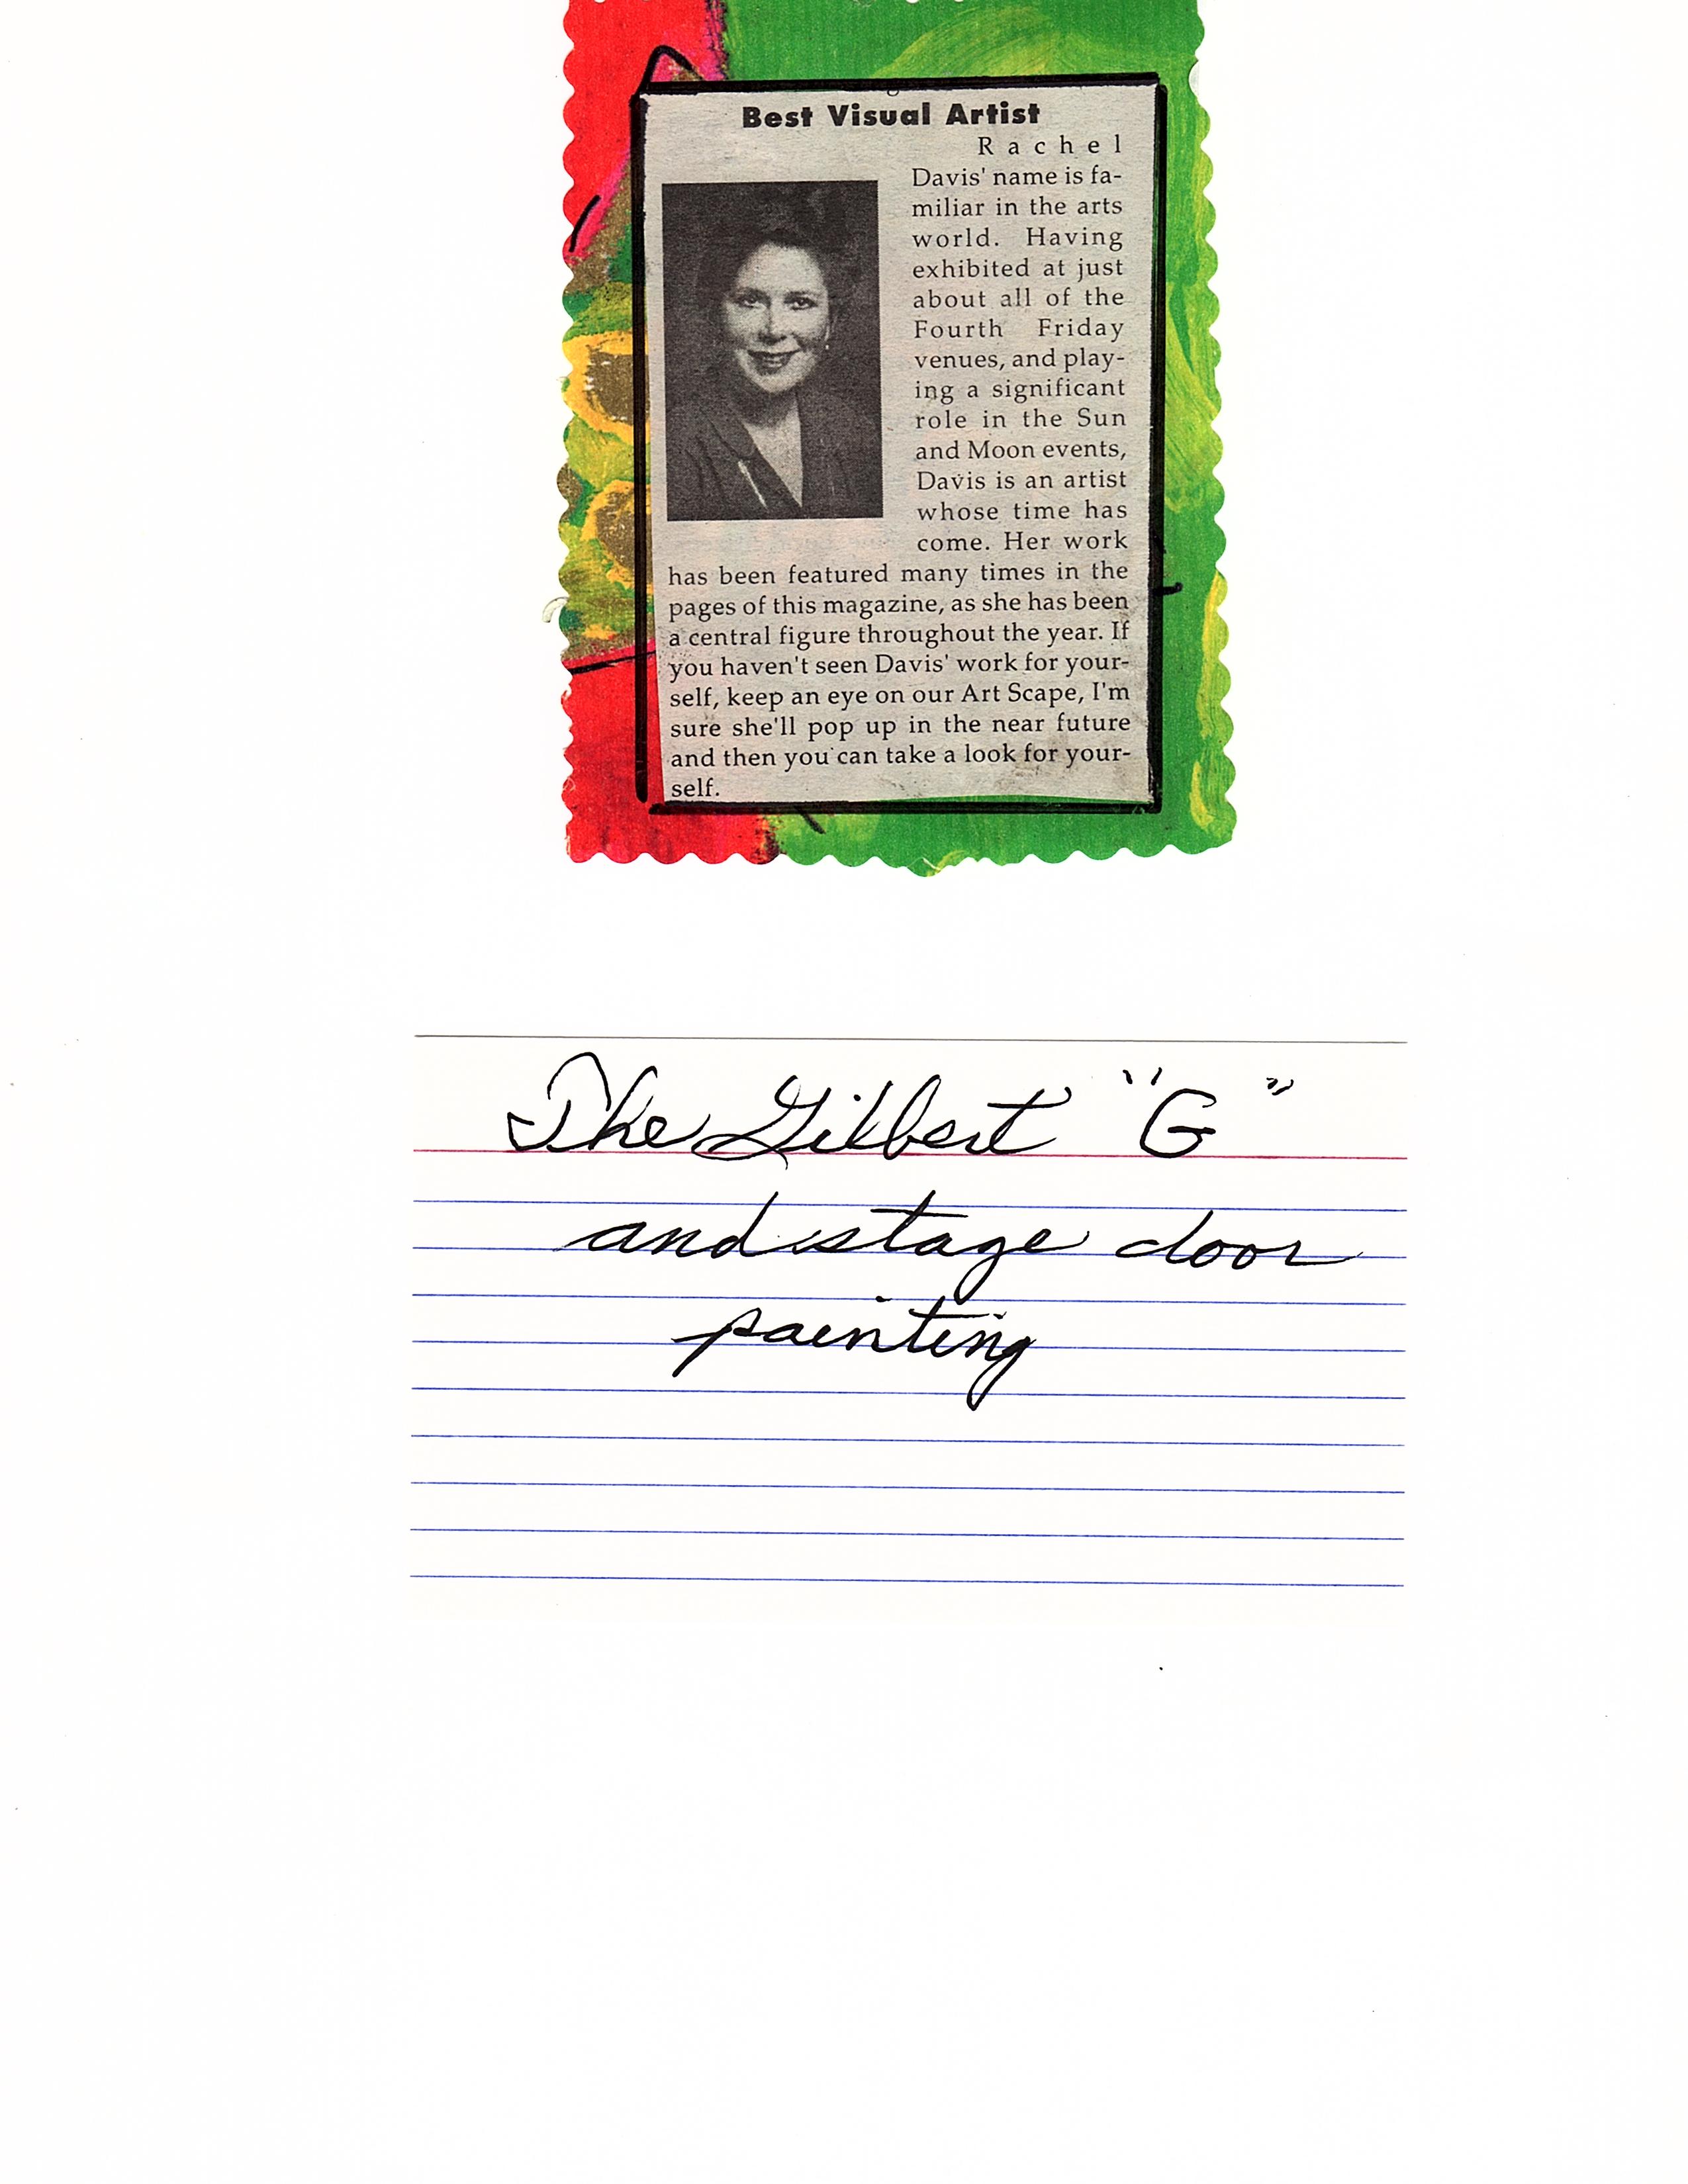 Best Visual Artist
Rachel
Davis' name is fa-
miliar in the arts
world. Having
exhibited at just
about all of the
Fourth Friday
venues, and play-
ing a significant
role in the Sun
and Moon events,
Davis is an artist
whose time has
come. Her work
has been featured many times in the
pages of this magazine, as she has been
a central figure throughout the year. If
you haven't seen Davis' work for your-
self, keep an eye on our Art Scape, I'm
sure she'll pop up in the near future
and then you can take a look for your-
self.
The Gilbert "G"
and stage door
painting